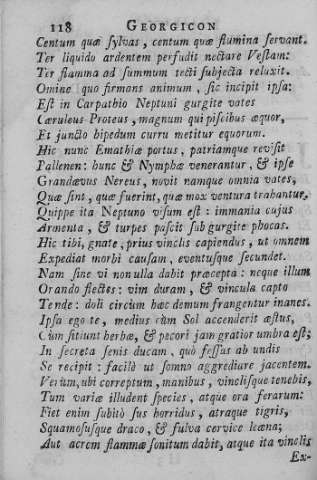 118 GEORGICON
Centum quæ sylvas, centum quæ flumina servant.
Ter liquido ardentem perfudit nectare Vestam:
Ter flamma ad summum tecti subjecta reluxit.
Omine quo firmans animum, sic incipit ipsa:
Est in Carpathio Neptuni gurgite vates
Cæruleus Proteus, magnum qui piscibus æquor,
Et juncto bipedum curru metitur equorum.
Hic nunc Emathiæ portus, patriamque revisit
Pallenen: hunc & Nymphæ venerantur, & ipse
Grandævus Nereus, novit namque omnia vates,
Quæ sint, quæ fuerint, quæ mox ventura trahantur.
Quippe ita Neptuno visum est: immania cujus
Armenta, & turpes pascit sub gurgite phocas.
Hic tibi, gnate, prius vinclis capiendus, ut omnem
Expediat morbi causam, eventusque secundet.
Nam sine vi non ulla dabit præcepta: neque illum
Orando flectes: vim duram, & vincula capto
Tende: doli circùm hæc demum frangentur inanes.
Ipsa ego te, medius cùm Sol accenderit æstus,
Cùm sitiunt herbæ, & pecori jam gratior umbra est;
In secreta senis ducam, quò fessus ab undis
Se recipit: facilè ut somno aggrediare jacentem.
Verùm, ubi correptum, manibus, vinclisque tenebis,
Tum variæ illudent species, atque ora ferarum:
Fiet enim subitò sus horridus, atraque tigris,
Squamosusque draco, & fulva cervice leæna;
Aut acrem flammæ sonitum dabit, atque ita vinclis
Ex-